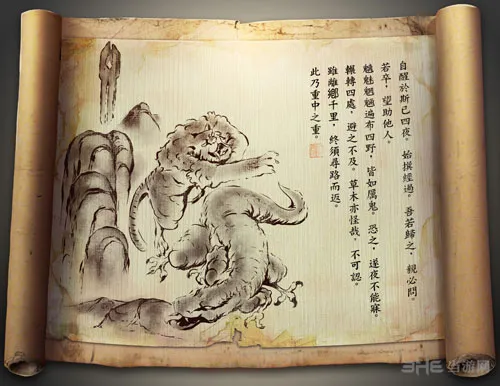 自醒於斯已四夜。始撰經過。吾若歸之，親必問。
若卒，望助他人。
魑魅魍魎遍布四野，皆如厲鬼。恐之，遂夜不能寐。
輾轉四處，避之不及。草木亦怪哉，不可認。
雖離鄉千里，終須尋路而返。
此乃重中之重。